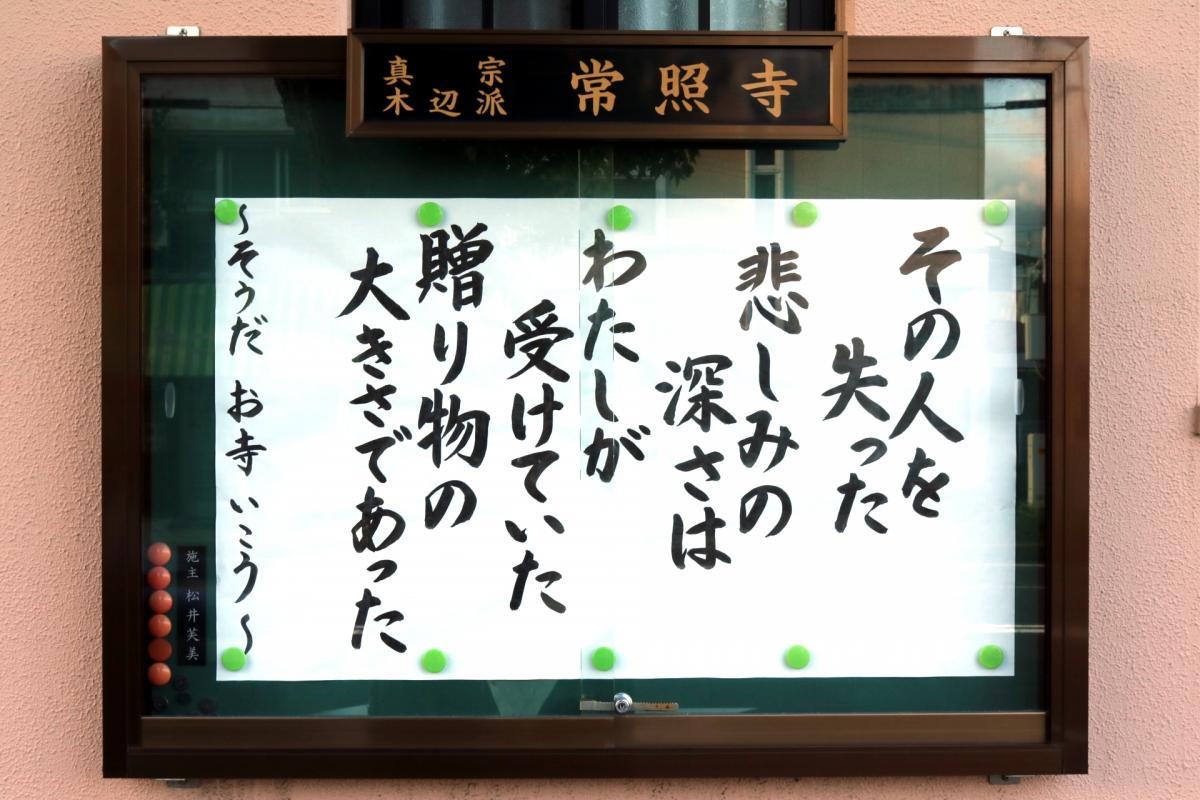 真宗
木辺派
常照寺
その人を
失った
悲しみの
深さは
わたしが
受けていた
贈り物の
大きさであった
～そうだ お寺 いこう～
施主 松井芙美